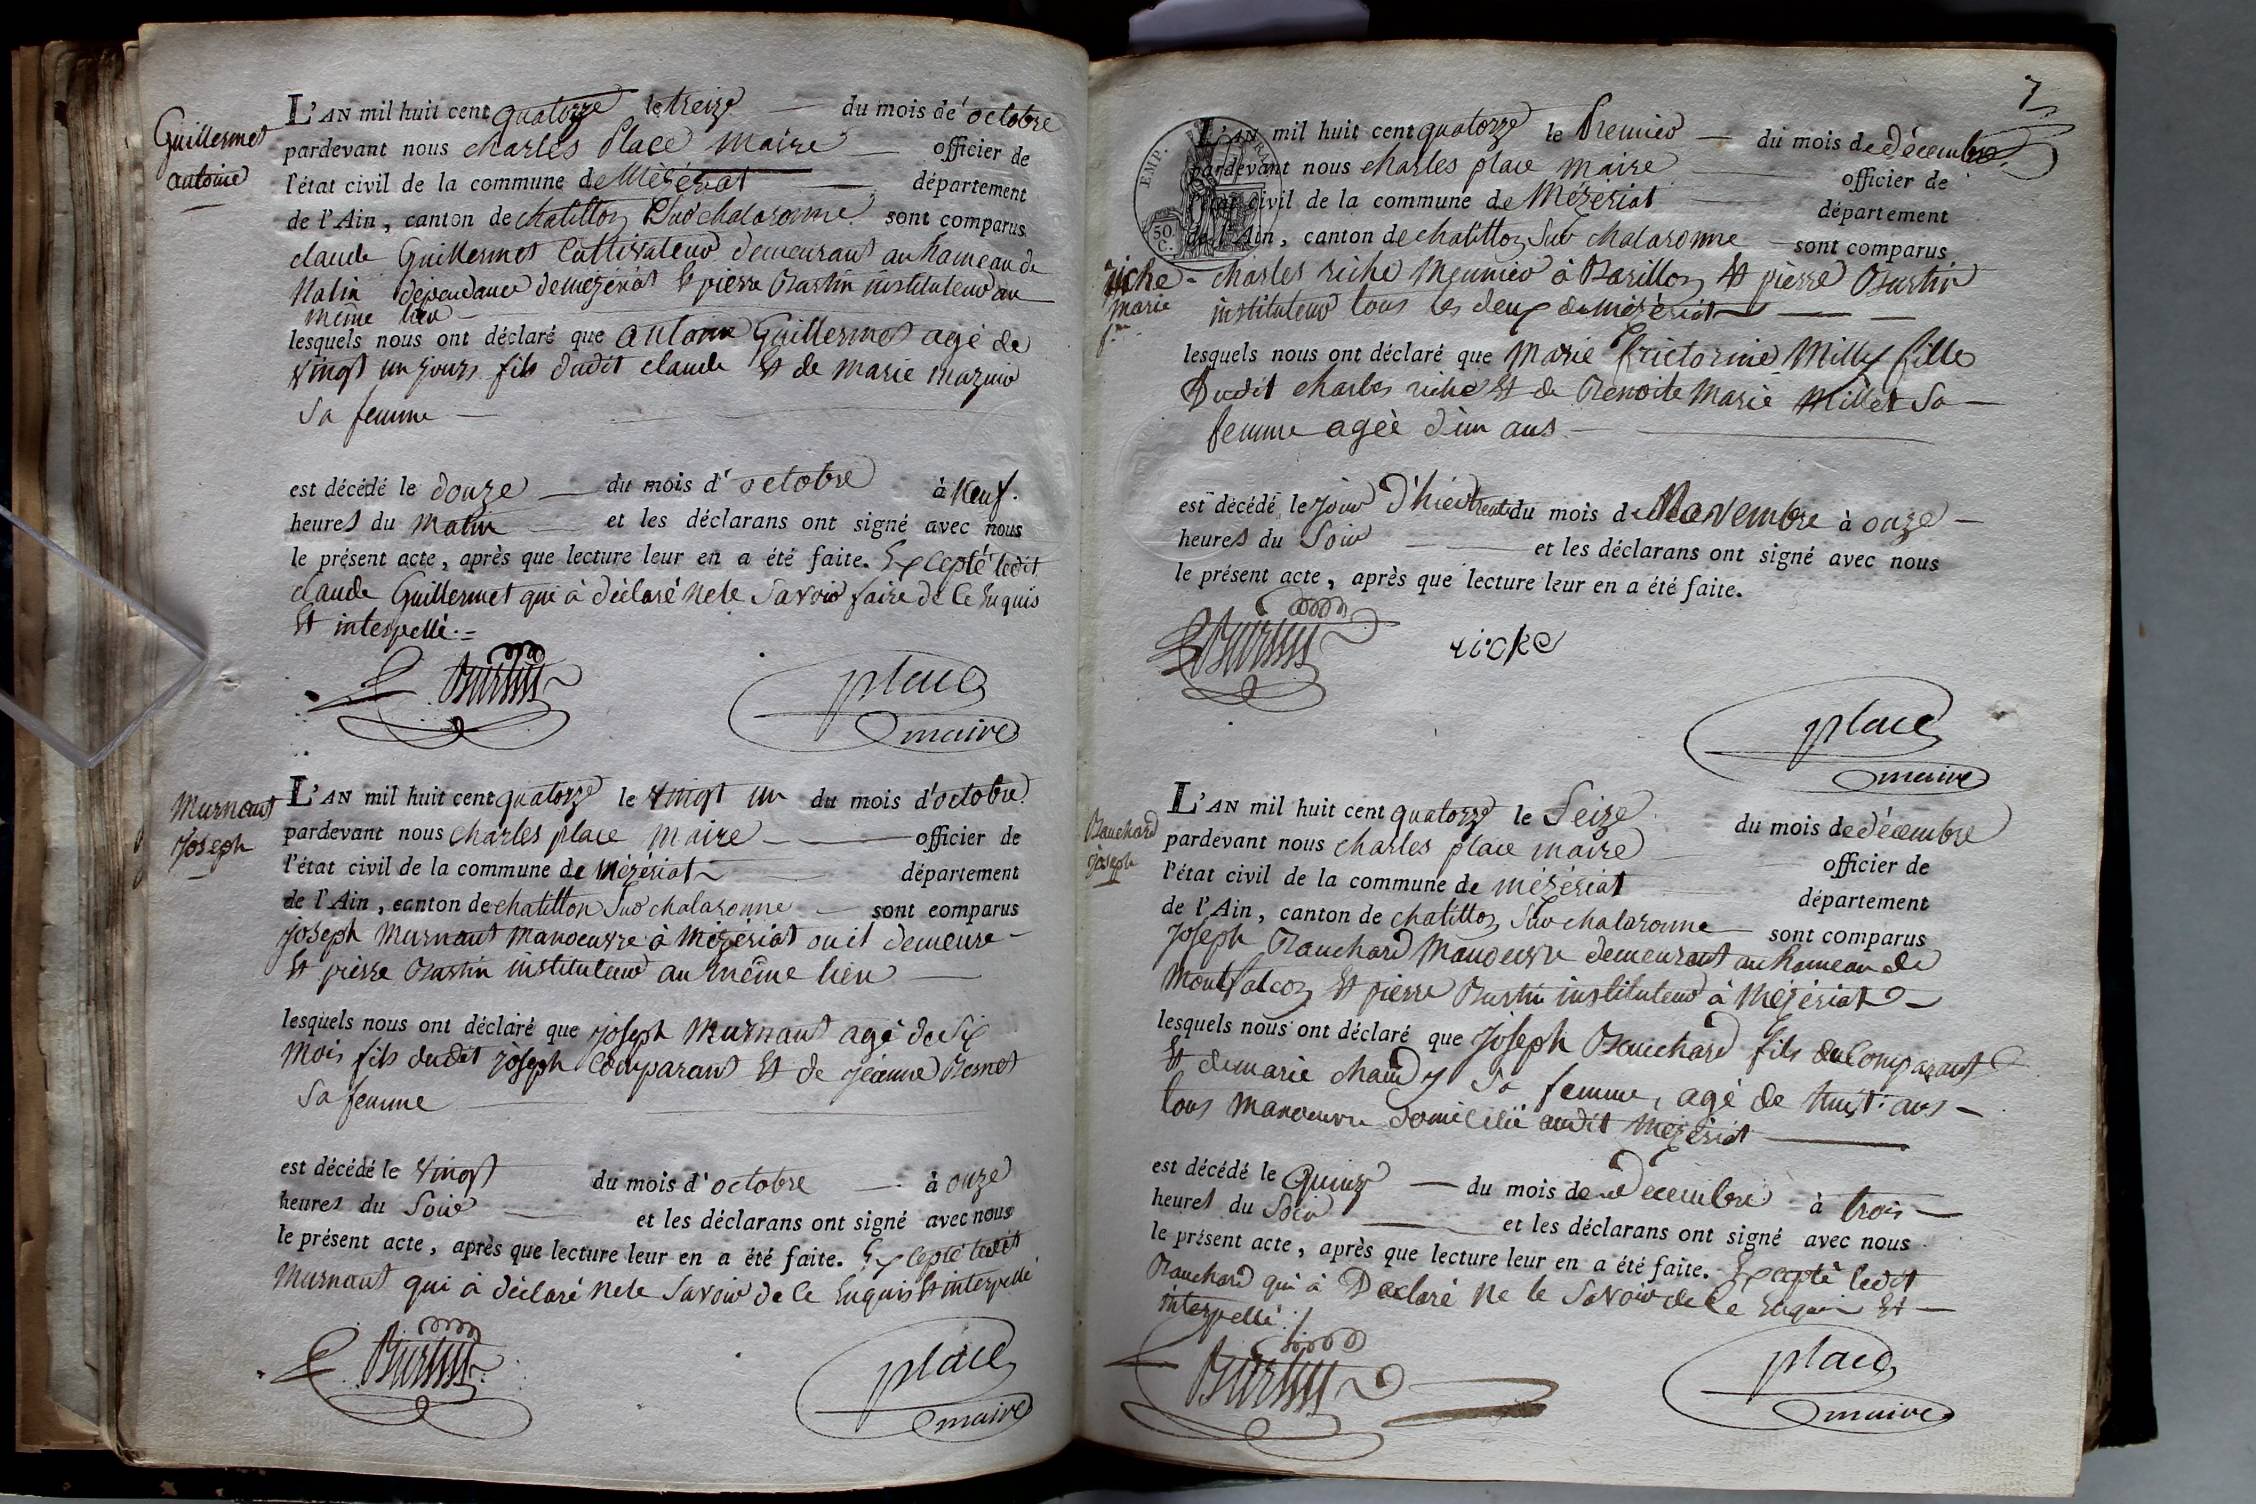 Guillermet
antoine
L'AN mil huit cent quatorze le treize du mois d'octobre
pardevant nous charles Place maire officier de
l'état civil de la commune de Mézériat département
de l'Ain, canton de chatillon Sur chalaronne sont comparus
claude Guillermet Cultivateur demeurant au hameau de
dependance de mézériat Et pierre Burtin instituteur au
même lieu
lesquels nous ont déclaré que antoine Guillermet agé de
vingt un jours fils dudit claude Et de marie mazuir
Sa femme
est décédé le douze du mois d'octobre à neuf
heures du matin et les déclarans ont signé avec nous
le présent acte, après que lecture leur en a été faite. Excepté ledit
claude Guillermet qui à déclaré ne le Savoir faire de ce Enquis
Et interpellé.=
Burtin place
maire
Murnant
Joseph
L'AN mil huit cent quatorze le vingt un du mois d'octobre
pardevant nous charles place maire officier de
l'état civil de la commune de mézériat département
de l'Ain, canton de chatillon Sur chalaronne sont comparus
joseph Murnant manoeuvre à mézériat ou il demeure
Et pierre Burtin instituteur au même lieu
lesquels nous ont déclaré que joseph Murnant agé de Six
mois fils dudit joseph comparant Et de jeanne
Sa femme
est décédé le vingt du mois d'octobre à onze
heures du Soir et les déclarans ont signé avec nous
le présent acte, après que lecture leur en a été faite. Excepté ledit
Murnant qui à déclaré ne le Savoir de ce Enquis Et interpellé
Burtin place
maire
7
EMP. FRA
50.
C.
L'AN mil huit cent quatorze le Premier du mois de décembre
pardevant nous charles place maire officier de
l'état civil de la commune de Mézériat département
de l'Ain, canton de chatillon Sur chalaronne sont comparus
riche
marie
charles riche Meunier à Barillon Et pierre Burtin
instituteur tous les deux de mézériat
lesquels nous ont déclaré que Marie Milly fille
Dudit charles riche Et de Benoite Marie Millet Sa
femme agée d'un ans
est décédé le jour d'hier trente du mois de Novembre à onze
heures du Soir et les déclarans ont signé avec nous
le présent acte, après que lecture leur en a été faite.
Burtin riche
place
maire
Bauchard
joseph
L'AN mil huit cent quatorze le Seize du mois de décembre
pardevant nous charles place maire officier de
l'état civil de la commune de mézériat département
de l'Ain, canton de chatillon Sur chalaronne sont comparus
Joseph Bauchard Manoeuvre demeurant au hameau de
Montfalcon Et pierre Burtin instituteur à Mézériat
lesquels nous ont déclaré que Joseph Bauchard fils du Comparant
Et de marie chandy Sa femme, agé de huit ans
tous manoeuvre domicilié audit Mézériat
est décédé le Quinze du mois de Decembre à trois
heures du Soir et les déclarans ont signé avec nous
le présent acte, après que lecture leur en a été faite. Excepté ledit
Bauchard qui à Déclaré ne le Savoir de Ce Enquis Et
interpellé
Burtin place
maire